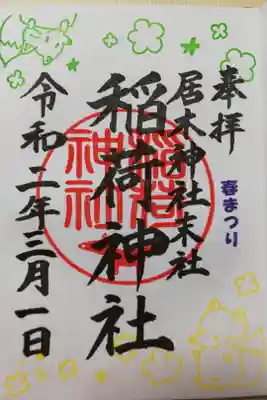 奉拝
春まつり
居木神社末社
稲荷神社
稲荷神社
令和二年三月一日